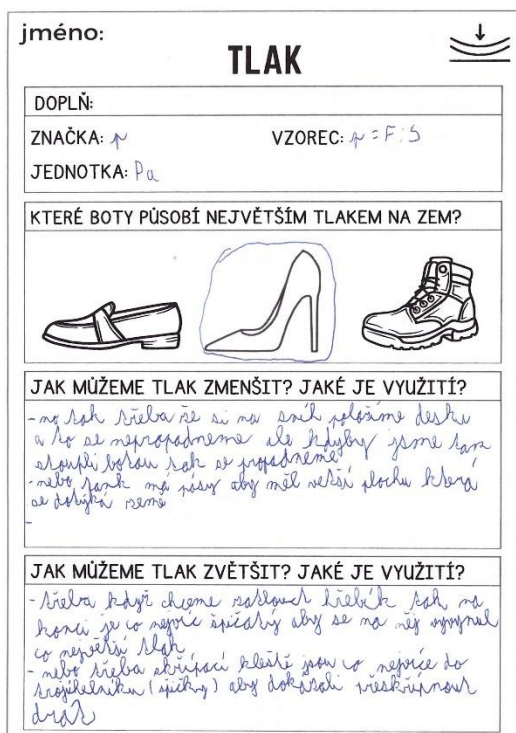 jméno:
TLAK
DOPLŇ:
ZNAČKA: p
VZOREC: p = F:S
JEDNOTKA: Pa
KTERÉ BOTY PŮSOBÍ NEJVĚTŠÍM TLAKEM NA ZEM?
JAK MŮŽEME TLAK ZMENŠIT? JAKÉ JE VYUŽITÍ?
- no tak třeba že si na sníh položíme desku
a to se nepropadneme ale kdyby jsme tam
stoupli botou tak se propadneme
- nebo tank má pásy aby měl vetší plochu která
se dotýká země
-
JAK MŮŽEME TLAK ZVĚTŠIT? JAKÉ JE VYUŽITÍ?
- třeba když chceme zatlouct hřebík tak na
konci je co nejvíc špičatý aby se na něj vyvynul
co největší tlak
- nebo třeba skřípací kleště jsou co nejvíce do
trojúhelníku (špičky) aby dokázali přeskřípnout
drát